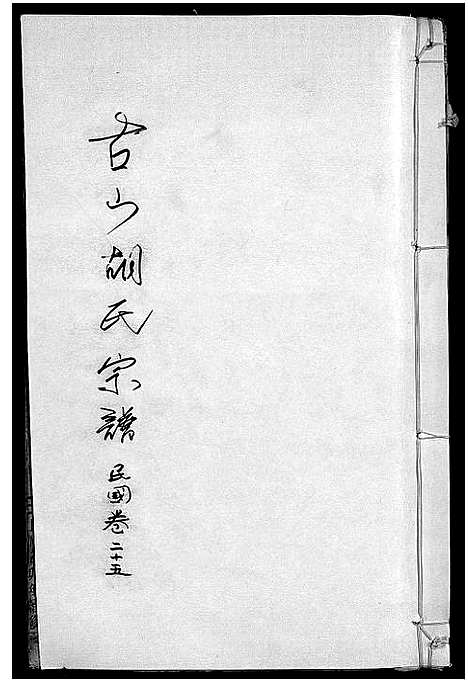 古山胡氏宗譜 民國卷二十五